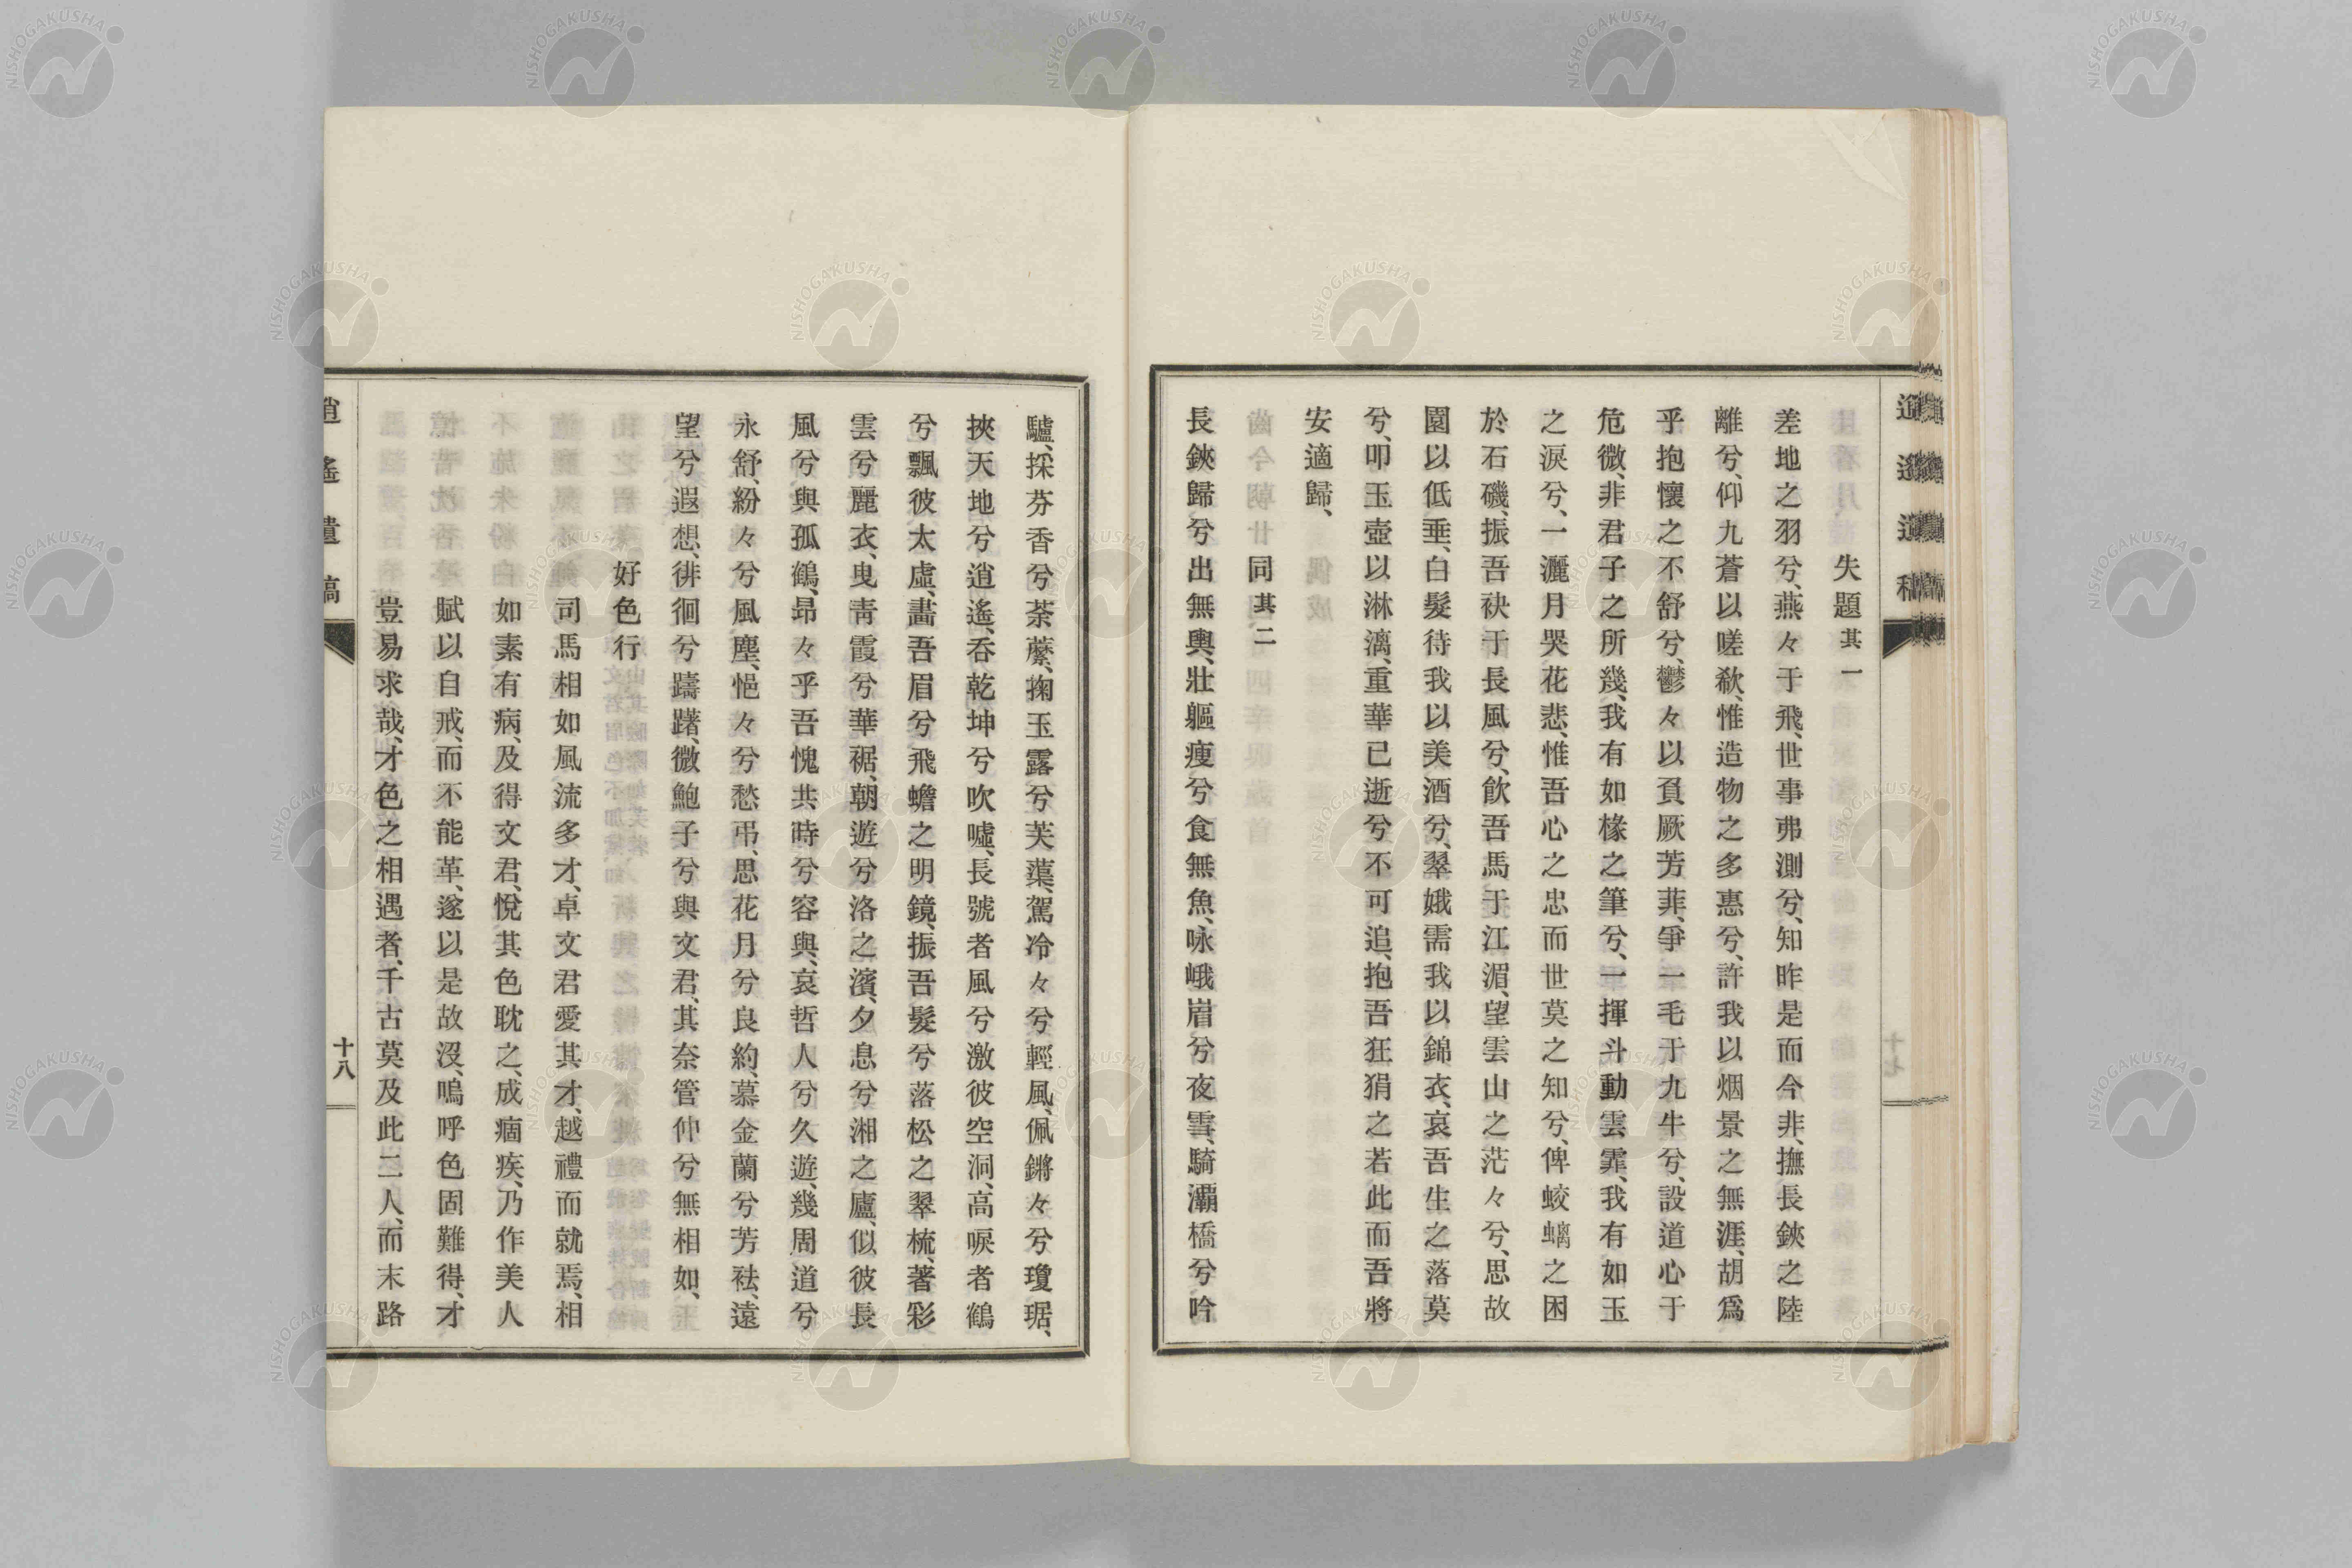 失題其一
差地之羽兮、燕々于飛、世事弗測兮、知昨是而今非、撫長鋏之陸
離兮、仰九蒼以嗟欷、惟造物之多惠兮、許我以烟景之無涯、胡爲
乎抱懷之不舒兮、鬱々以負厥芳菲、爭一毛于九牛兮、設道心于
危微、非君子之所幾、我有如椽之筆兮、一揮斗動雲霏、我有如玉
之淚兮、一灑月哭花悲、惟吾心之忠而世莫之知兮、俾蛟螭之困
於石磯、振吾袂于長風兮、飲吾馬于江湄、望雲山之茫々兮、思故
園以低垂、白髮待我以美酒兮、翠娥需我以錦衣、哀吾生之落莫
兮、叩玉壺以淋漓、重華已逝兮不可追、抱吾狂狷之若此而吾將
安適歸、
同其二
長鋏歸兮出無輿、壯軀瘦兮食無魚、咏峨眉兮夜雪、騎灞橋兮吟
驢、採芬香兮荼蘼、掬玉露兮芙蕖、駕冷々兮輕風、佩鏘々兮瓊琚、
挾天地兮逍遙、吞乾坤兮吹噓、長號者風兮激彼空洞、高唳者鶴
兮飄彼太虛、畫吾眉兮飛蟾之明鏡、振吾髮兮落松之翠梳、著彩
雲兮麗衣、曳靑霞兮華裾、朝遊兮洛之濱、夕息兮湘之廬、似彼長
風兮與孤鶴、昂々乎吾愧共、時兮容與、哀哲人兮久遊、幾周道兮
永舒、紛々兮風塵、悒々兮愁弔、思花月兮良約、慕金蘭兮芳袪、遠
望兮遐想、徘徊兮躊躇、微鮑子兮與文君、其奈管仲兮無相如、
好色行
司馬相如風流多才、卓文君愛其才、越禮而就焉、相
如素有病、及得文君、悅其色耽之、成痼疾、乃作美人
賦以自戒、而不能革、遂以是故沒、嗚呼色固難得、才
豈易求哉、才色之相遇者、千古莫及此二人、而末路
逍遙遺稿
十八